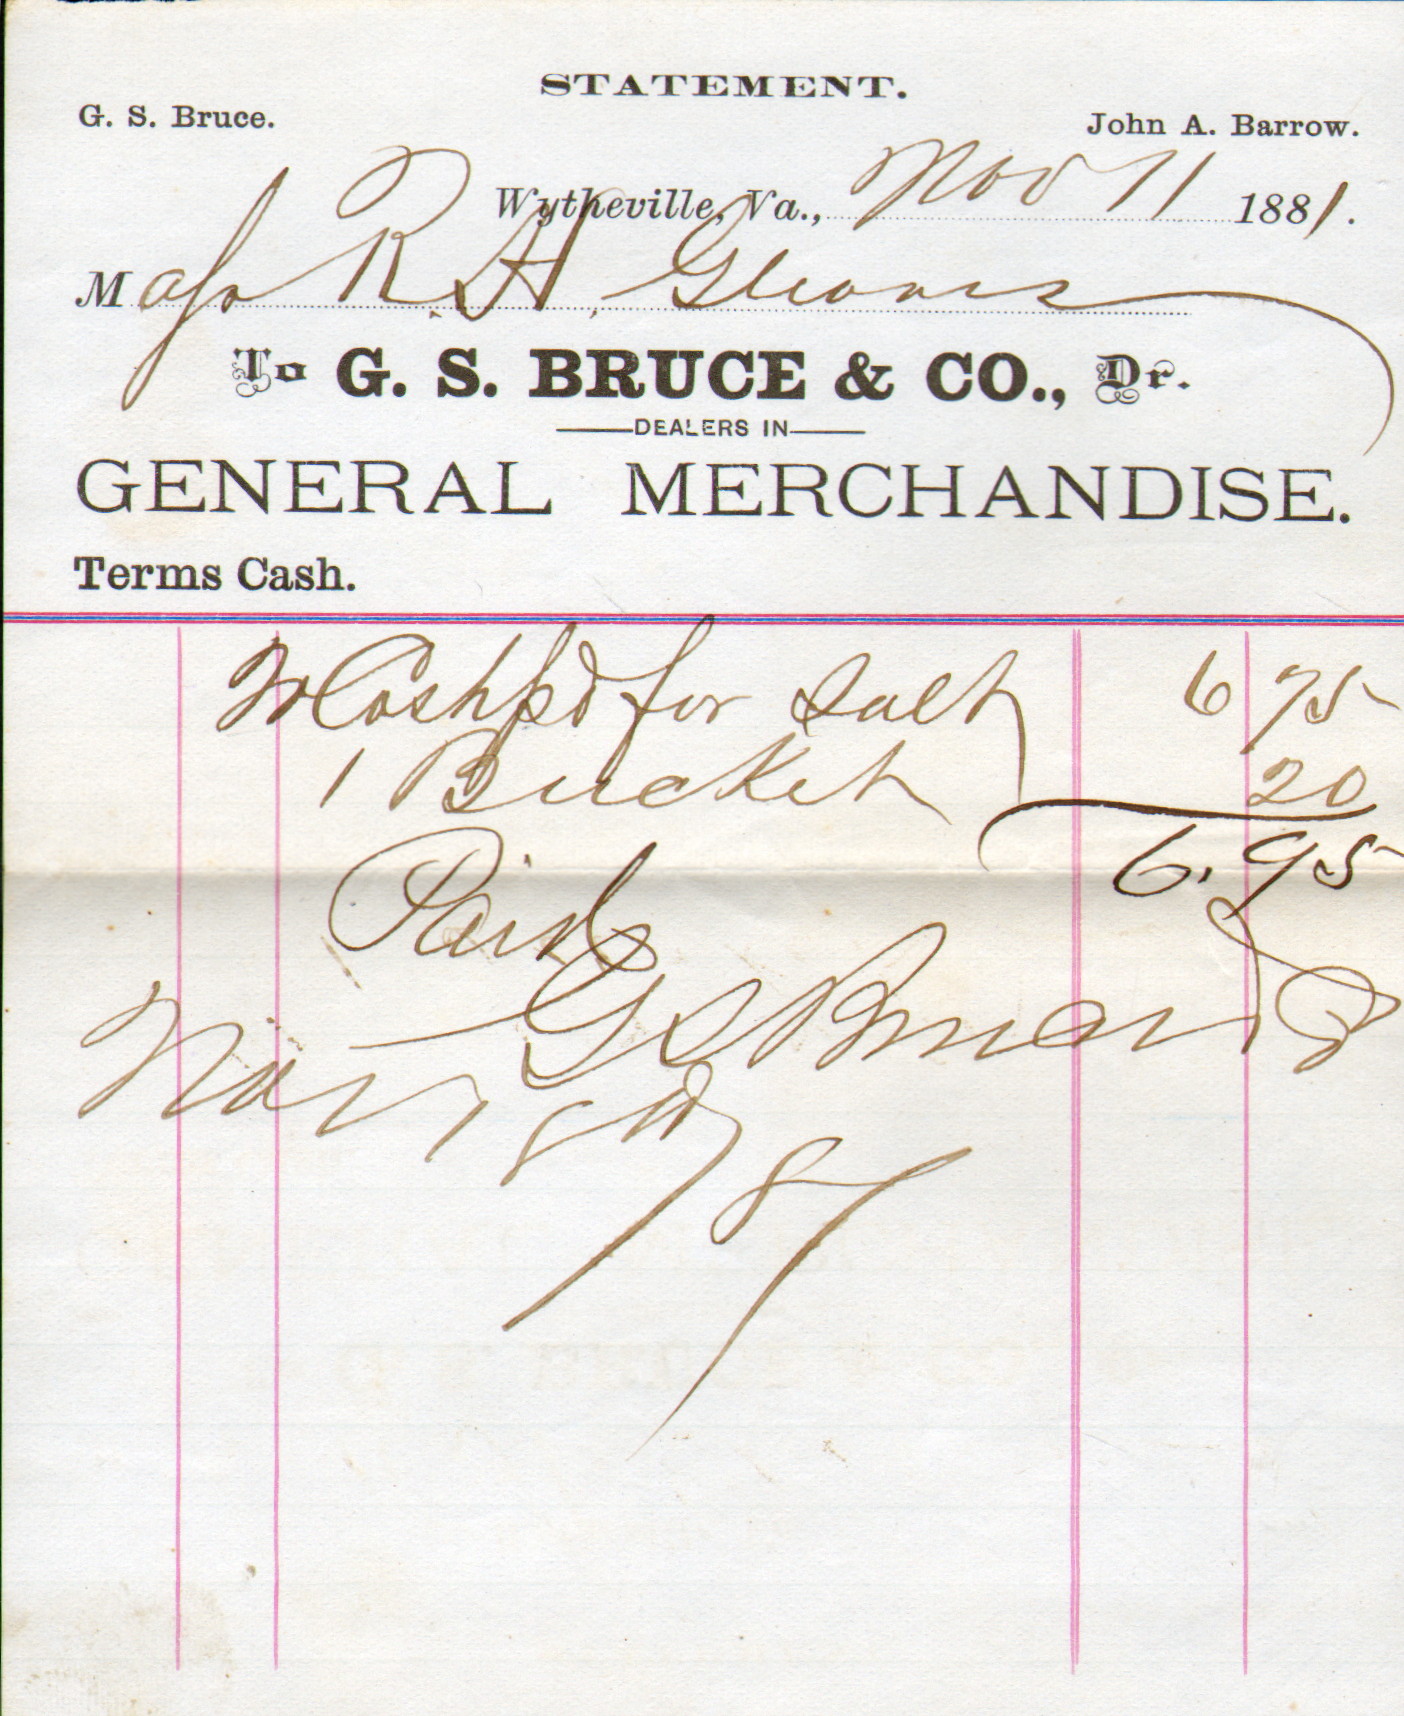 STATEMENT.
G. S. Bruce. John A. Barrow.
Wytheville, Va., Nov 11 1881.
Majr R. H. Gleaves
To G. S. BRUCE & CO., Dr.
DEALERS IN
GENERAL MERCHANDISE.
Terms Cash.
To Cash pd for Salt 6 75
1 Bucket 20
6.95
Paid
G S Bruce & Co
Nov